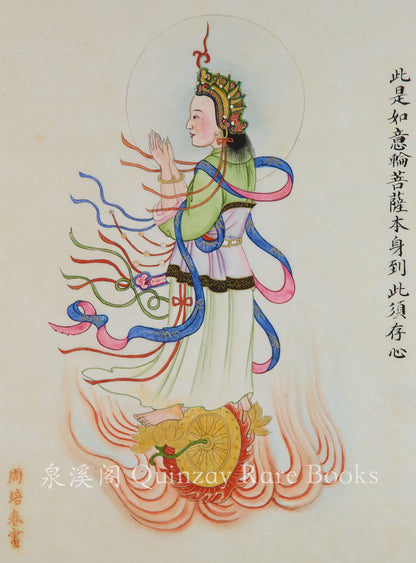 此是如意輪菩薩本身到此須存心
周培春畫
泉溪阁 Quinzay Rare Books